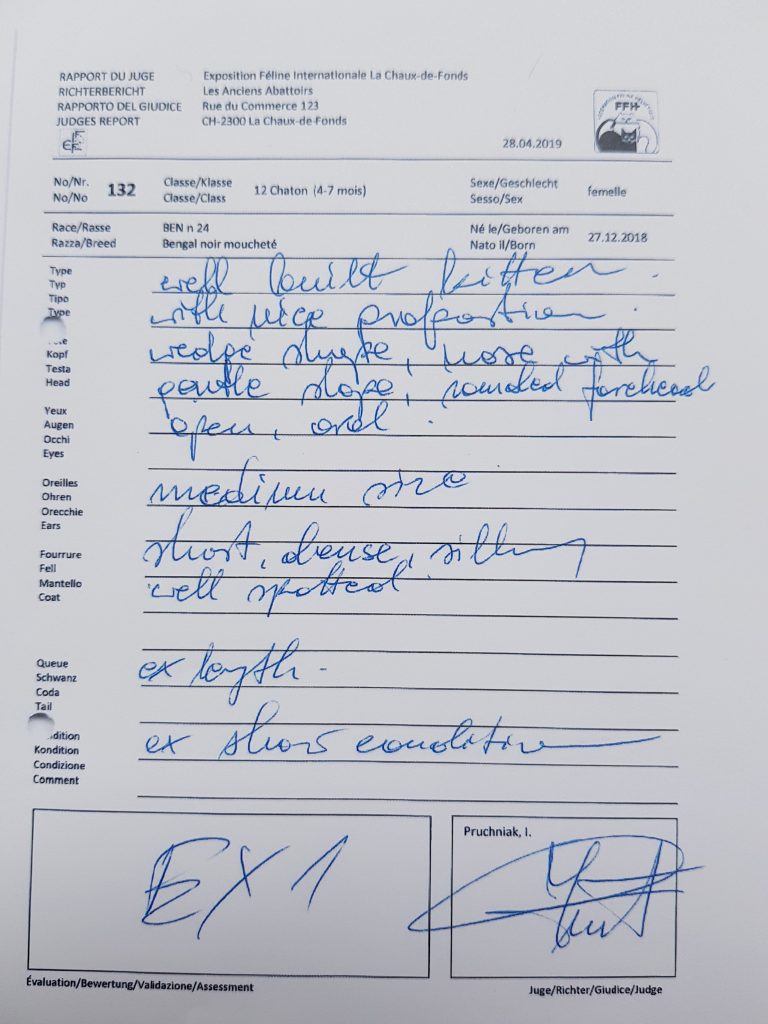 RAPPORT DU JUGE Exposition Féline Internationale La Chaux-de-Fonds
RICHTERBERICHT Les Anciens Abattoirs
RAPPORTO DEL GIUDICE Rue du Commerce 123
JUDGES REPORT CH-2300 La Chaux-de-Fonds
FFH
28.04.2019
No/Nr. 132 Classe/Klasse 12 Chaton (4-7 mois) Sexe/Geschlecht femelle
No/No Classe/Class Sesso/Sex
Race/Rasse BEN n 24 Né le/Geboren am 27.12.2018
Razza/Breed Bengal noir moucheté Nato il/Born
Type well built kitten.
Typ
Tipo with nice proportion.
Type
Kopf wedge shape, nose with
Testa
Head gentle slope, rounded forehead
Yeux open, oval.
Augen
Occhi
Eyes
Oreilles medium size
Ohren
Orecchie
Ears
Fourrure short, dense, silky
Fell
Mantello well spotted
Coat
Queue ex length.
Schwanz
Coda
Tail
dition ex show condition
Kondition
Condizione
Comment
EX 1 Pruchniak, I.
Évaluation/Bewertung/Validazione/Assessment Juge/Richter/Giudice/Judge